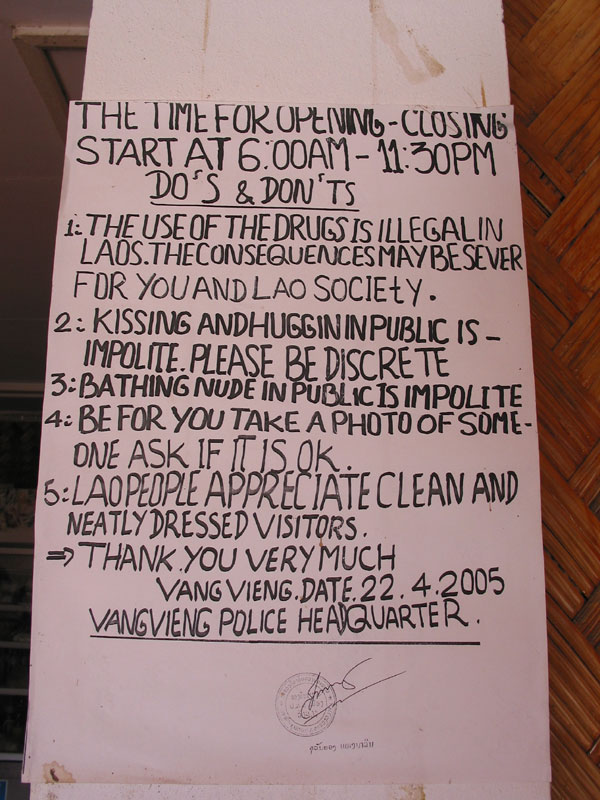 THE TIME FOR OPENING - CLOSING
START AT 6:00AM - 11:30PM
DO'S & DON'TS
1: THE USE OF THE DRUGS IS ILLEGAL IN
LAOS. THE CONSEQUENCES MAY BE SEVER
FOR YOU AND LAO SOCIEtY.
2: KISSING AND HUGGIN IN PUBLIC IS -
IMPOLITE. PLEASE BE DISCRETE
3: BATHING NUDE IN PUBLIC IS IMPOLITE
4: BE FOR YOU TAKE A PHOTO OF SOME-
ONE ASK IF IT IS OK.
5: LAO PEOPLE APPRECIATE CLEAN AND
NEATLY DRESSED VISITORS.
⇒ THANK.YOU VERY MUCH
VANG VIENG. DATE. 22. 4. 2005
VANGVIENG POLICE HEADQUARTER.